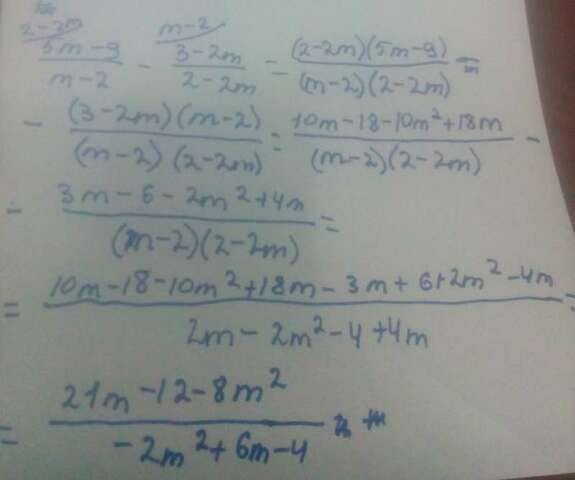 2-2m m-2
(5m-9)/(m-2) - (3-2m)/(2-2m) = ((2-2m)(5m-9))/((m-2)(2-2m)) =
- ((3-2m)(m-2))/((m-2)(2-2m)) = (10m-18-10m²+18m)/((m-2)(2-2m)) -
- (3m-6-2m²+4m)/((m-2)(2-2m)) =
= (10m-18-10m²+18m-3m+6+2m²-4m)/(2m-2m²-4+4m) =
= (21m-12-8m²)/(-2m²+6m-4)